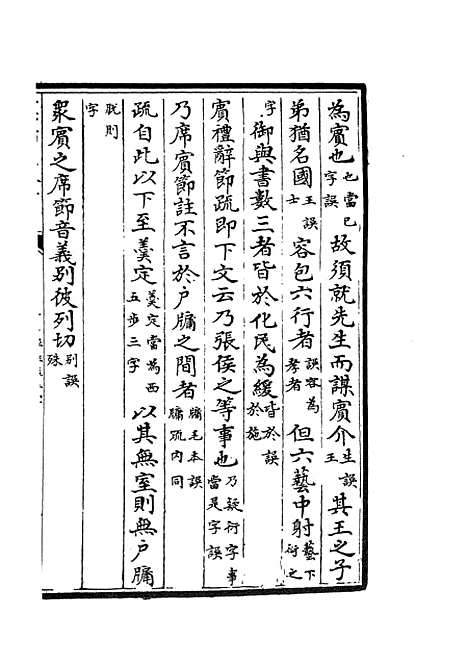 為賓也也當已字誤故須就先生而謀賓介生誤王其王之子
弟猶名國王誤士容包六行者誤容為孝者但六藝中射藝下衍之
字御與書數三者皆於化民為緩皆於誤於施
賓禮辭節疏即下文云乃張侯之等事也乃疑衍字事當是字誤
乃席賓節註不言於户牖之間者牖毛本誤牗疏内同
疏自此以下至羮定羮定當為西五步三字以其無室則無户牖
脱則字
衆賓之席節音義别彼列切别誤殊